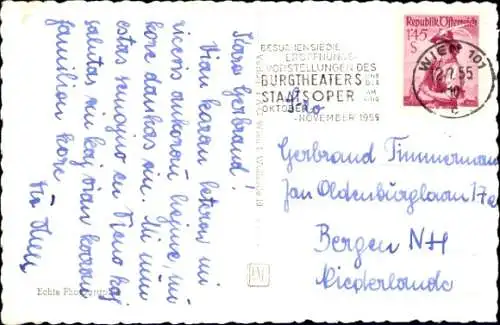 Kara Gerbrand!
Vian karan leteron mi
ricevis ankoraŭ hejme, mi
kore dankas vin. Ni nun
estas semajno en Vieno kaj
salutas vin kaj vian karan
familion kore.
Via
BESUCHEN SIE DIE
ERÖFFNUNGS-
VORSTELLUNGEN DES
BURGTHEATERS UND DER
STAATSOPER AM RING
OKTOBER
-NOVEMBER 1955
Republik Österreich
1·45
S
WIEN 101
55
10
c
Gerbrand Timmerman
Jan Oldenburglaan 17
Bergen NH
Niederlande
Echte Photographie